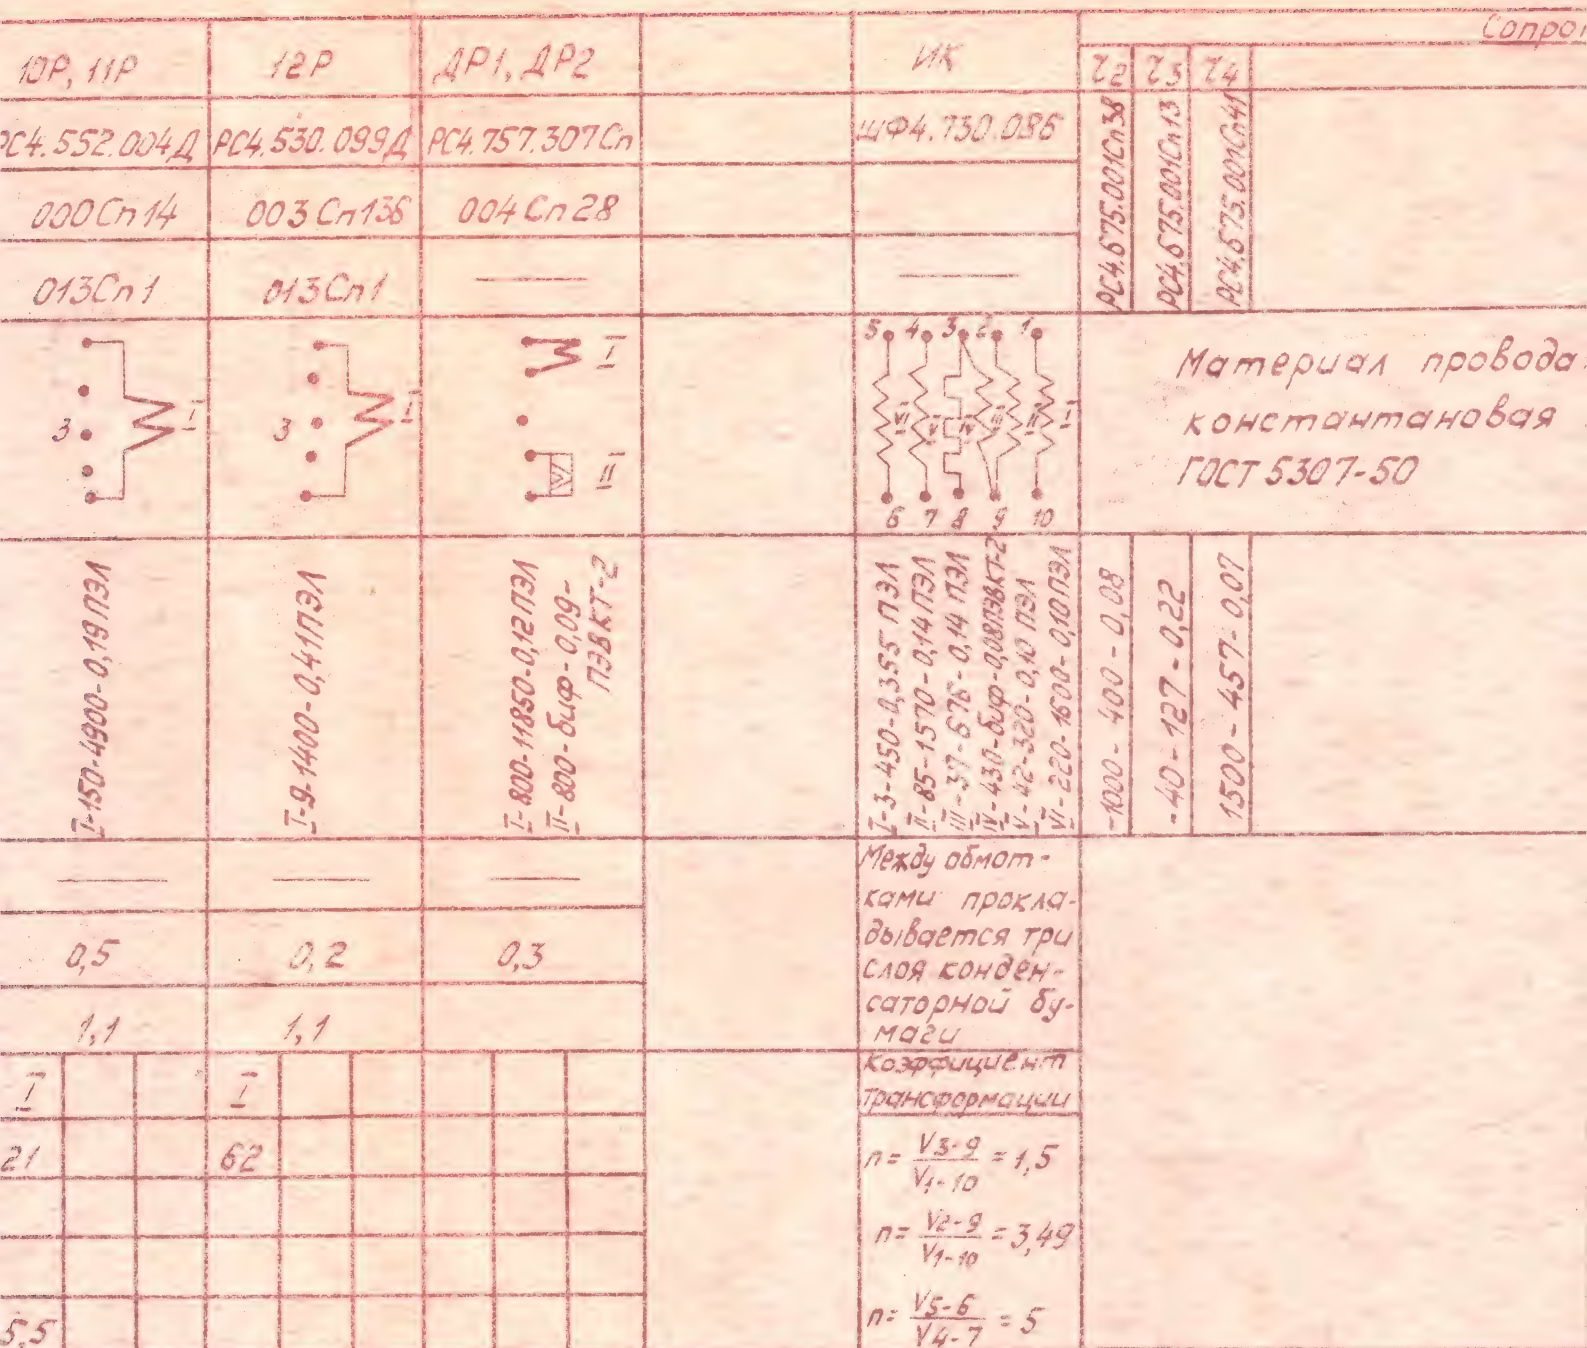 Сопро
10Р, 11Р
12Р
ДР1, ДР2
ИК
r2 r3 r4
РС4.552.004Д
РС4.530.099Д
РС4.757.307Сп
ШФ4.730.086
РС4.675.001Сп38
РС4.675.001Сп13
РС4.675.001Сп41
000Сп14
003Сп136
004Сп28
013Сп1
013Сп1
3
I
3
I
I
II
5 4 3 2 1
VI V IV III II I
6 7 8 9 10
Материал провода
константановая
ГОСТ 5307-50
I-150-4900-0,19ПЭЛ
I-9-1400-0,41ПЭЛ
I-800-11850-0,12ПЭЛ
II-800-биф-0,09-
ПЭВКТ-2
I-3-450-0,355 ПЭЛ
II-85-1570-0,14ПЭЛ
III-37-676-0,14 ПЭЛ
IV-430-биф-0,08ПЭВКТ-2
V-42-320-0,10 ПЭЛ
VI-220-1600-0,10ПЭЛ
-1000-400-0,08
-40-127-0,22
1500-457-0,07
Между обмот-
ками прокла-
дывается три
слоя конден-
саторной бу-
маги
0,5
0,2
0,3
1,1
1,1
Коэффициент
трансформации
I
I
21
62
n= V3-9 / V1-10 = 1,5
n= V2-9 / V1-10 = 3,49
n= V5-6 / V4-7 = 5
5,5